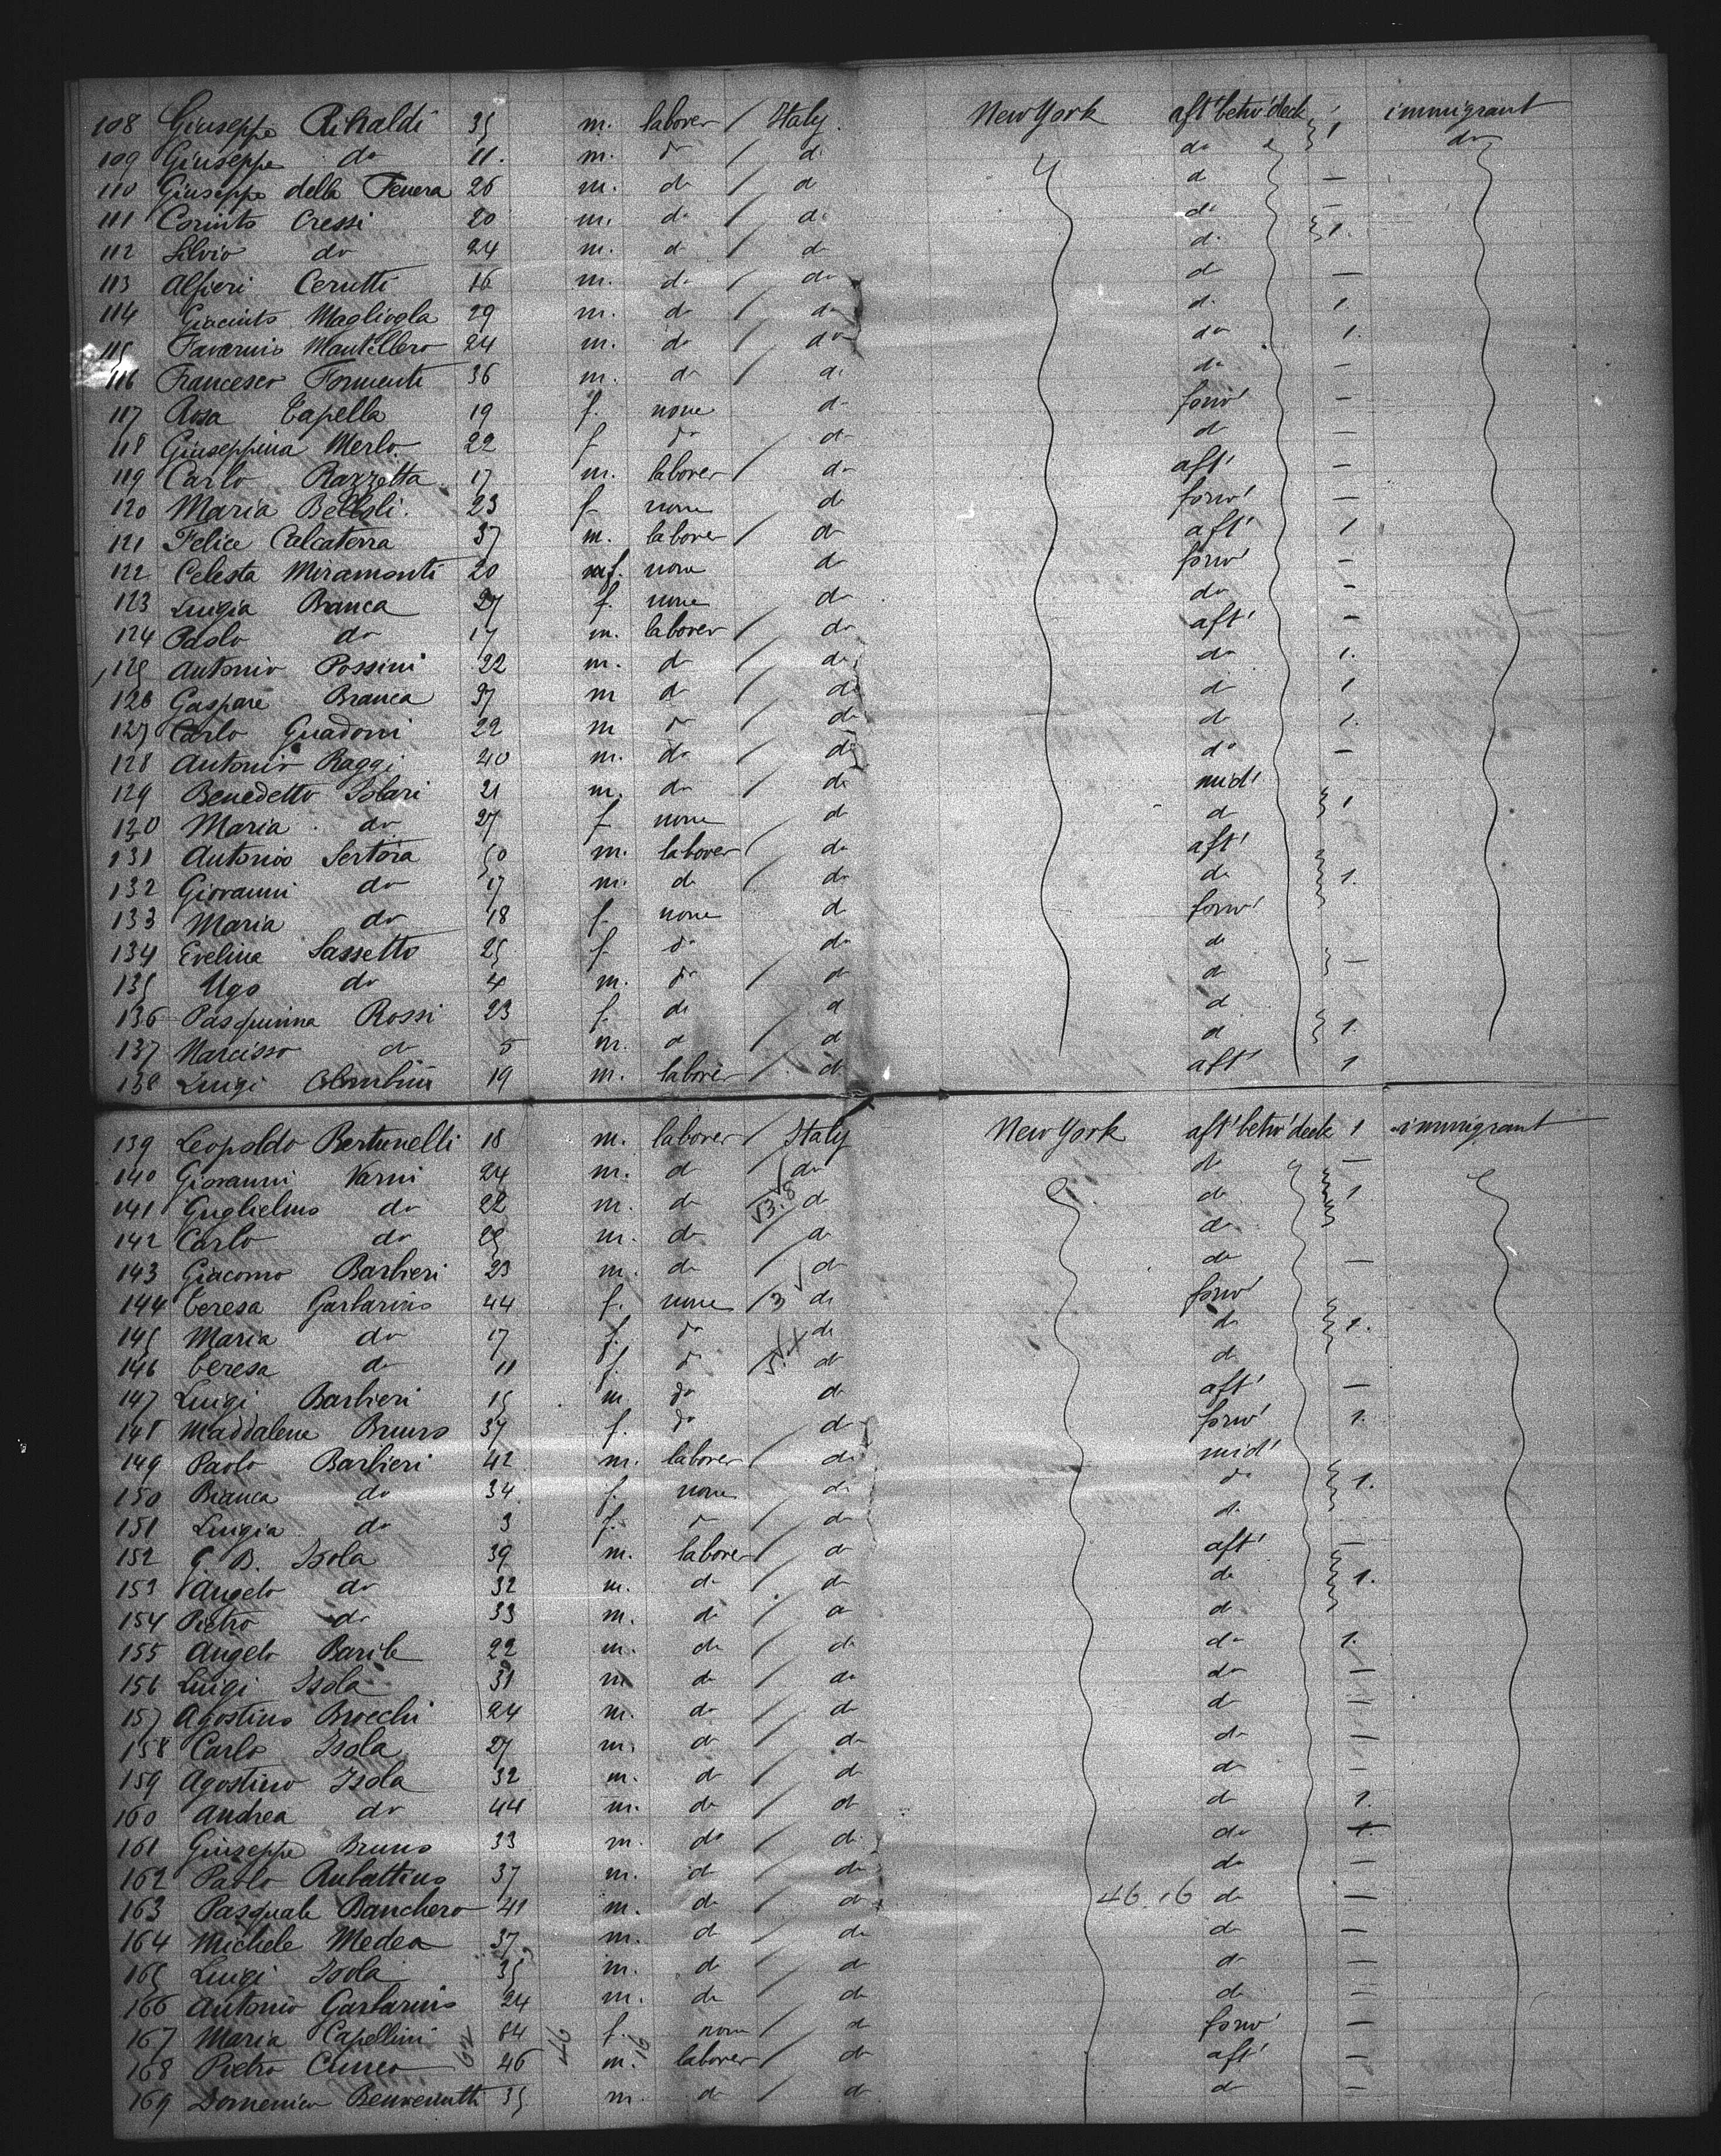 108 Giuseppe Rinaldi 35 m. laborer / Italy. New York aft' betw' deck 1 immigrant
109 Giuseppe do 11. m. do / do do do
110 Giuseppe della 26 m. do / do do —
111 Corinto Cressi 20 m. do / do do 1.
112 Silvio do 24 m. do / do do
113 Alfieri Cerutti 16 m. do / do do —
114 Giacinto Magliogla 29 m. do / do do 1.
115 Mantellero 24 m. do / do do 1.
116 Francesco Formenti 36 m. do / do do —
117 Rosa Capella 19 f. none do forw' —
118 Giuseppina Merlo. 22 f do do do —
119 Carlo Razzetta 17 m. laborer / do aft' —
120 Maria Belloli. 23 f none do forw' —
121 Felice Calcaterra 37 m. laborer / do aft' 1
122 Celesta Miramonti 20 f. none do forw' —
123 Luigia Branca 27 f. none do do —
124 Paolo do 17 m. laborer / do aft' —
125 Antonio Possini 22 m. do / do do 1.
126 Gaspare Branca 37 m do / do do 1
127 Carlo Guadoni 22 m do / do do 1.
128 Antonio Raggi 40 m. do / do do —
129 Benedetto Solari 21 m. do / do mid' 1
130 Maria do 27 f none do do
131 Antonio Sertora 50 m. laborer / do aft'
132 Giovanni do 17 m. do / do do 1.
133 Maria do 18 f. none do forw'
134 Evelina Sassetto 25 f. do do do —
135 Ugo do 4 m. do / do do
136 Pasquinna Rossi 23 f. do do do 1.
137 Narcisso do 5 m. do / do do
138 Luigi Colombini 19 m. laborer / do aft' 1
139 Leopoldo Bertunelli 18 m. laborer / Italy New York aft' betw' deck 1 immigrant
140 Giovanni Varni 24 m. do / do do —
141 Guglielmo do 22 m. do / do do 1
142 Carlo do 25 m. do / do do
143 Giacomo Barbieri 23 m. do / do do —
144 Teresa Garbarino 44 f. none / 3 do forw'
145 Maria do 17 f. do do do 1.
146 Teresa do 11 f. do do do
147 Luigi Barbieri 15 m do do aft' —
148 Maddalena Bruno 37 f. do do forw' 1.
149 Paolo Barbieri 42 m. laborer / do mid'
150 Bianca do 34 f. none / do do 1.
151 Luigia do 3 f. do / do do
152 G. B. Isola 39 m. laborer / do aft' —
153 Angelo do 32 m. do / do do 1.
154 Pietro do 33 m. do / do do
155 Angelo Barile 22 m. do / do do 1.
156 Luigi Isola 31 m do / do do —
157 Agostino Brocchi 24 m. do / do do —
158 Carlo Isola 27 m. do / do do —
159 Agostino Isola 32 m. do / do do —
160 Andrea do 44 m. do / do do 1.
161 Giuseppe Bruno 33 m. do / do do 1.
162 Paolo Rubattino 37 m. do / do do —
163 Pasquale Banchero 41 m. do / do 46 16 do —
164 Michele Medea 37 m. do / do do —
165 Luigi Isola 35 m. do / do do —
166 Antonio Garbarino 24 m. do / do do —
167 Maria Capellini 64 f. none / do forw' —
168 Pietro Cuneo 46 m. laborer / do aft' —
169 Domenico Benvenutti 35 m. do / do do —
62 46 16